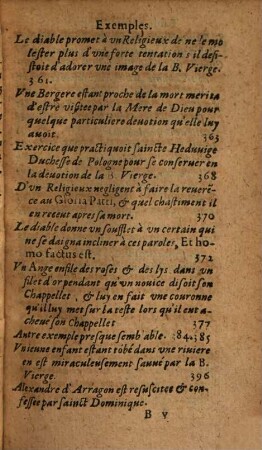 Exemples.
Le diable promet à vn Religieux de ne le mo
lester plus d'vne forte tentation s'il desi-
stoit d'adorer vne image de la B. Vierge.
361.
Vne Bergere estant proche de la mort merita
d'estre visitee par la Mere de Dieu pour
quelque particuliere deuotion qu'elle luy
auoit. 363
Exercice que practiquoit saincte Heduuige
Duchesse de Pologne pour se conseruer en
la deuotion de la B. Vierge. 368
D'vn Religieux negligent à faire la reuerē-
ce au Gloria Patri, & quel chastiment il
en receut apres sa mort. 370
Le diable donne vn soufflet à vn certain qui
ne se daigna incliner à ces paroles, Et ho-
mo factus est, 372
Vn Ange enfile des roses & des lys dans vn
filet d'or pendant qu'vn nouice disoit son
Chappellet, & luy en fait vne couronne
qu'il luy met sur la teste lors qu'il eut a-
cheué son Chappellet 377
Autre exemple presque semblable. 384.385
Vn ieune enfant estant tōbé dans vne riuiere
en est miraculeusement sauué par la B.
Vierge. 396
Alexandre d'Arragon est resuscitee & con-
fessee par sainct Dominique.
B v